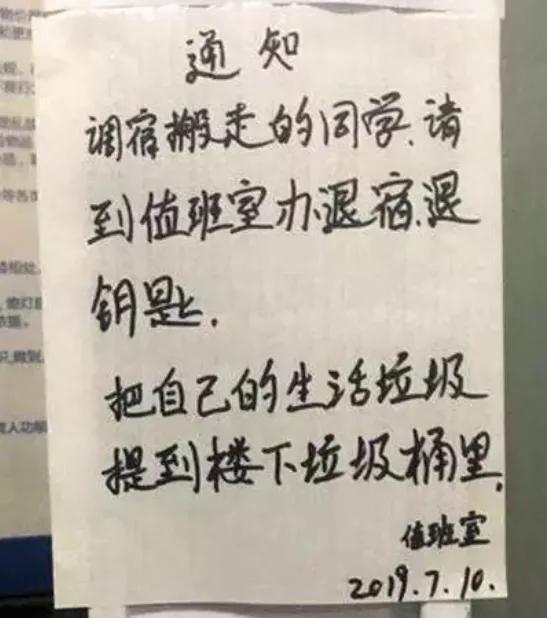 通知
调宿搬走的同学.请
到值班室办退宿.退
钥匙.
把自己的生活垃圾
提到楼下垃圾桶里.
值班室
2019.7.10.